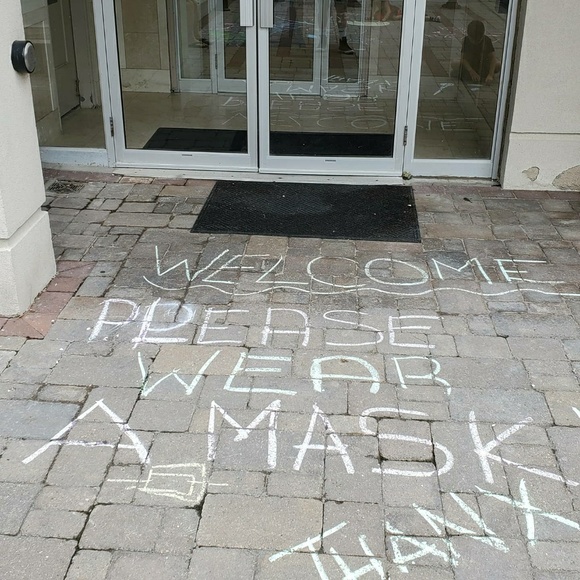 WELCOME
PLEASE
WEAR
A MASK
THANX